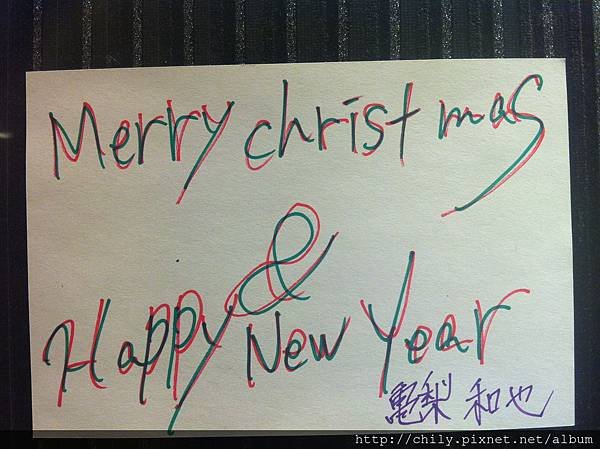 Merry christmas
&
Happy New Year
亀梨 和也
http://chily.pixnet.net/album